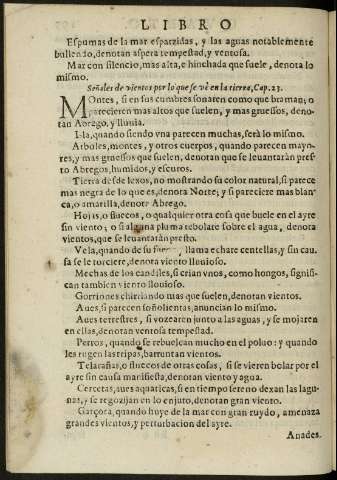 LIBRO
Espumas de la mar esparzidas, y las aguas notablemente
bullendo, denotan aspera tempestad, y ventosa.
Mar con silencio, mas alta, e hinchada que suele, denota lo
mismo.
Señales de vientos por lo que se vè en la tierra, Cap. 23.
MOntes, si en sus cumbres sonaren como que braman; o
parecieren mas altos que suelen, y mas gruessos, deno-
tan Abrego, y lluvia.
Isla, quando siendo vna parecen muchas, serà lo mismo.
Arboles, montes, y otros cuerpos, quando parecen mayo-
res, y mas gruessos que suelen, denotan que se leuantaràn pres-
to Abregos, humidos, y escuros.
Tierra desde lexos, no mostrando su color natural, si parece
mas negra de lo que es, denota Norte; y si pareciere mas blan-
ca, o amarilla, denota Abrego.
Hojas, o fluecos, o qualquier otra cosa que buele en el ayre
sin viento; o si alguna pluma rebolare sobre el agua, denota
vientos, que se leuantaràn presto.
Vela, quando de su llama echare centellas, y sin cau-
sa se le torciere, denota viento lluuioso.
Mechas de los candiles, si crian vnos, como hongos, signifi-
can tambien viento lluuioso.
Gorriones chirriando mas que suelen, denotan vientos.
Aues, si parecen soñolientas, anuncian lo mismo.
Aues terrestres, si vozearen junto a las aguas, y se mojaren
en ellas, denotan ventosa tempestad.
Perros, quando se rebuelcan mucho en el poluo: y quando
les rugen las tripas, barruntan vientos.
Telarañas, o fluecos de otras cosas, si se vieren bolar por el
ayre sin causa manifiesta, denotan viento y agua.
Cercetas, aues aquaticas, si en tiempo sereno dexan las lagu-
nas, y se regozijan en lo enjuto, denotan gran viento.
Garçota, quando huye de la mar con gran ruydo, amenaza
grandes vientos, y perturbacion del ayre.
Anades.